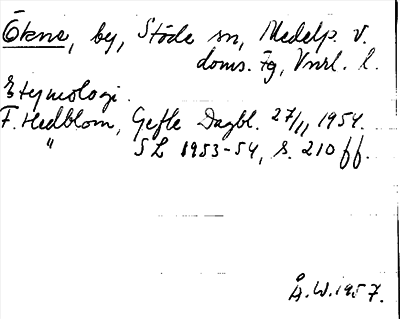 Ökne, by, Stöde sn, Medelp. v.
doms. Fg, Vnrl. l.
Etymologi.
F. Hedblom, Gefle Dagbl. 27/11 1954.
" SL 1953-54, s. 210 ff.
Å.W. 1957.